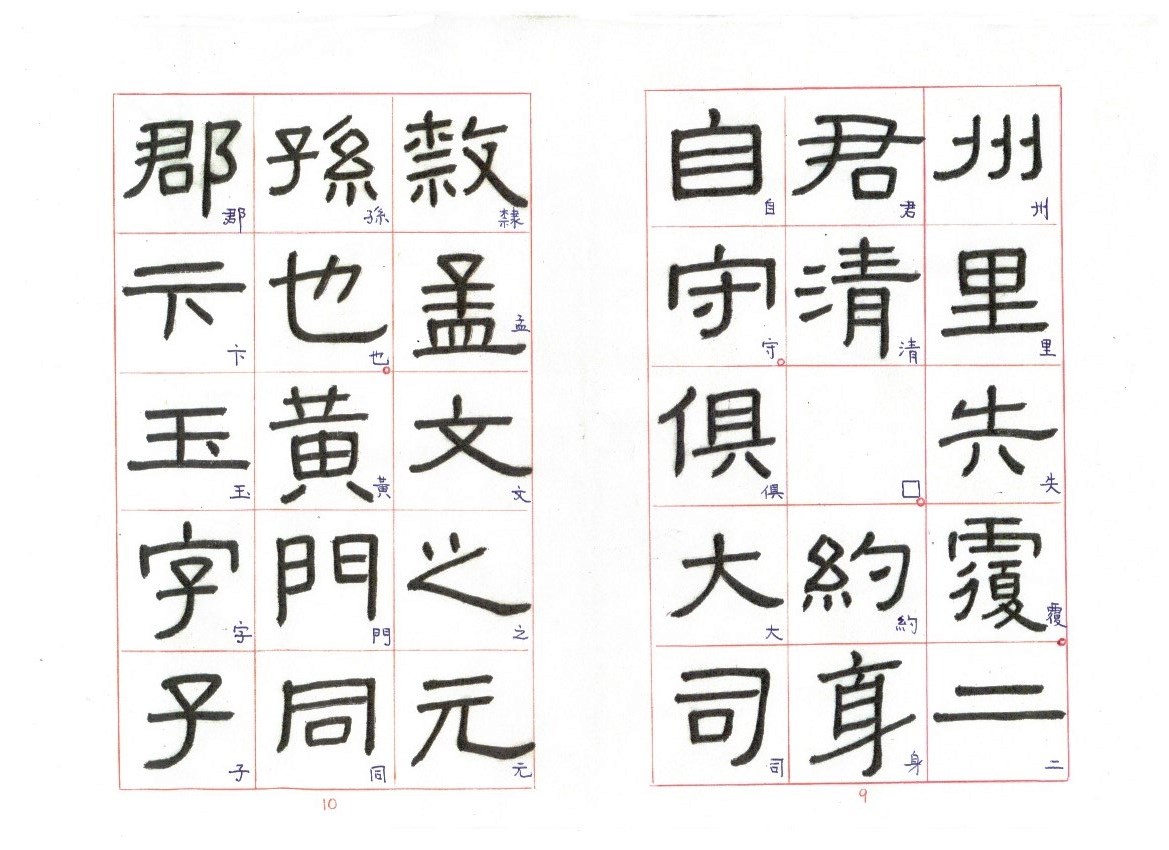 州里失覆二
州里失覆二
君清約身
君清□約身
自守俱大司
自守俱大司
9
隸孟文之元
隸孟文之元
孫也黃門同
孫也黃門同
郡卞玉字子
郡卞玉字子
10